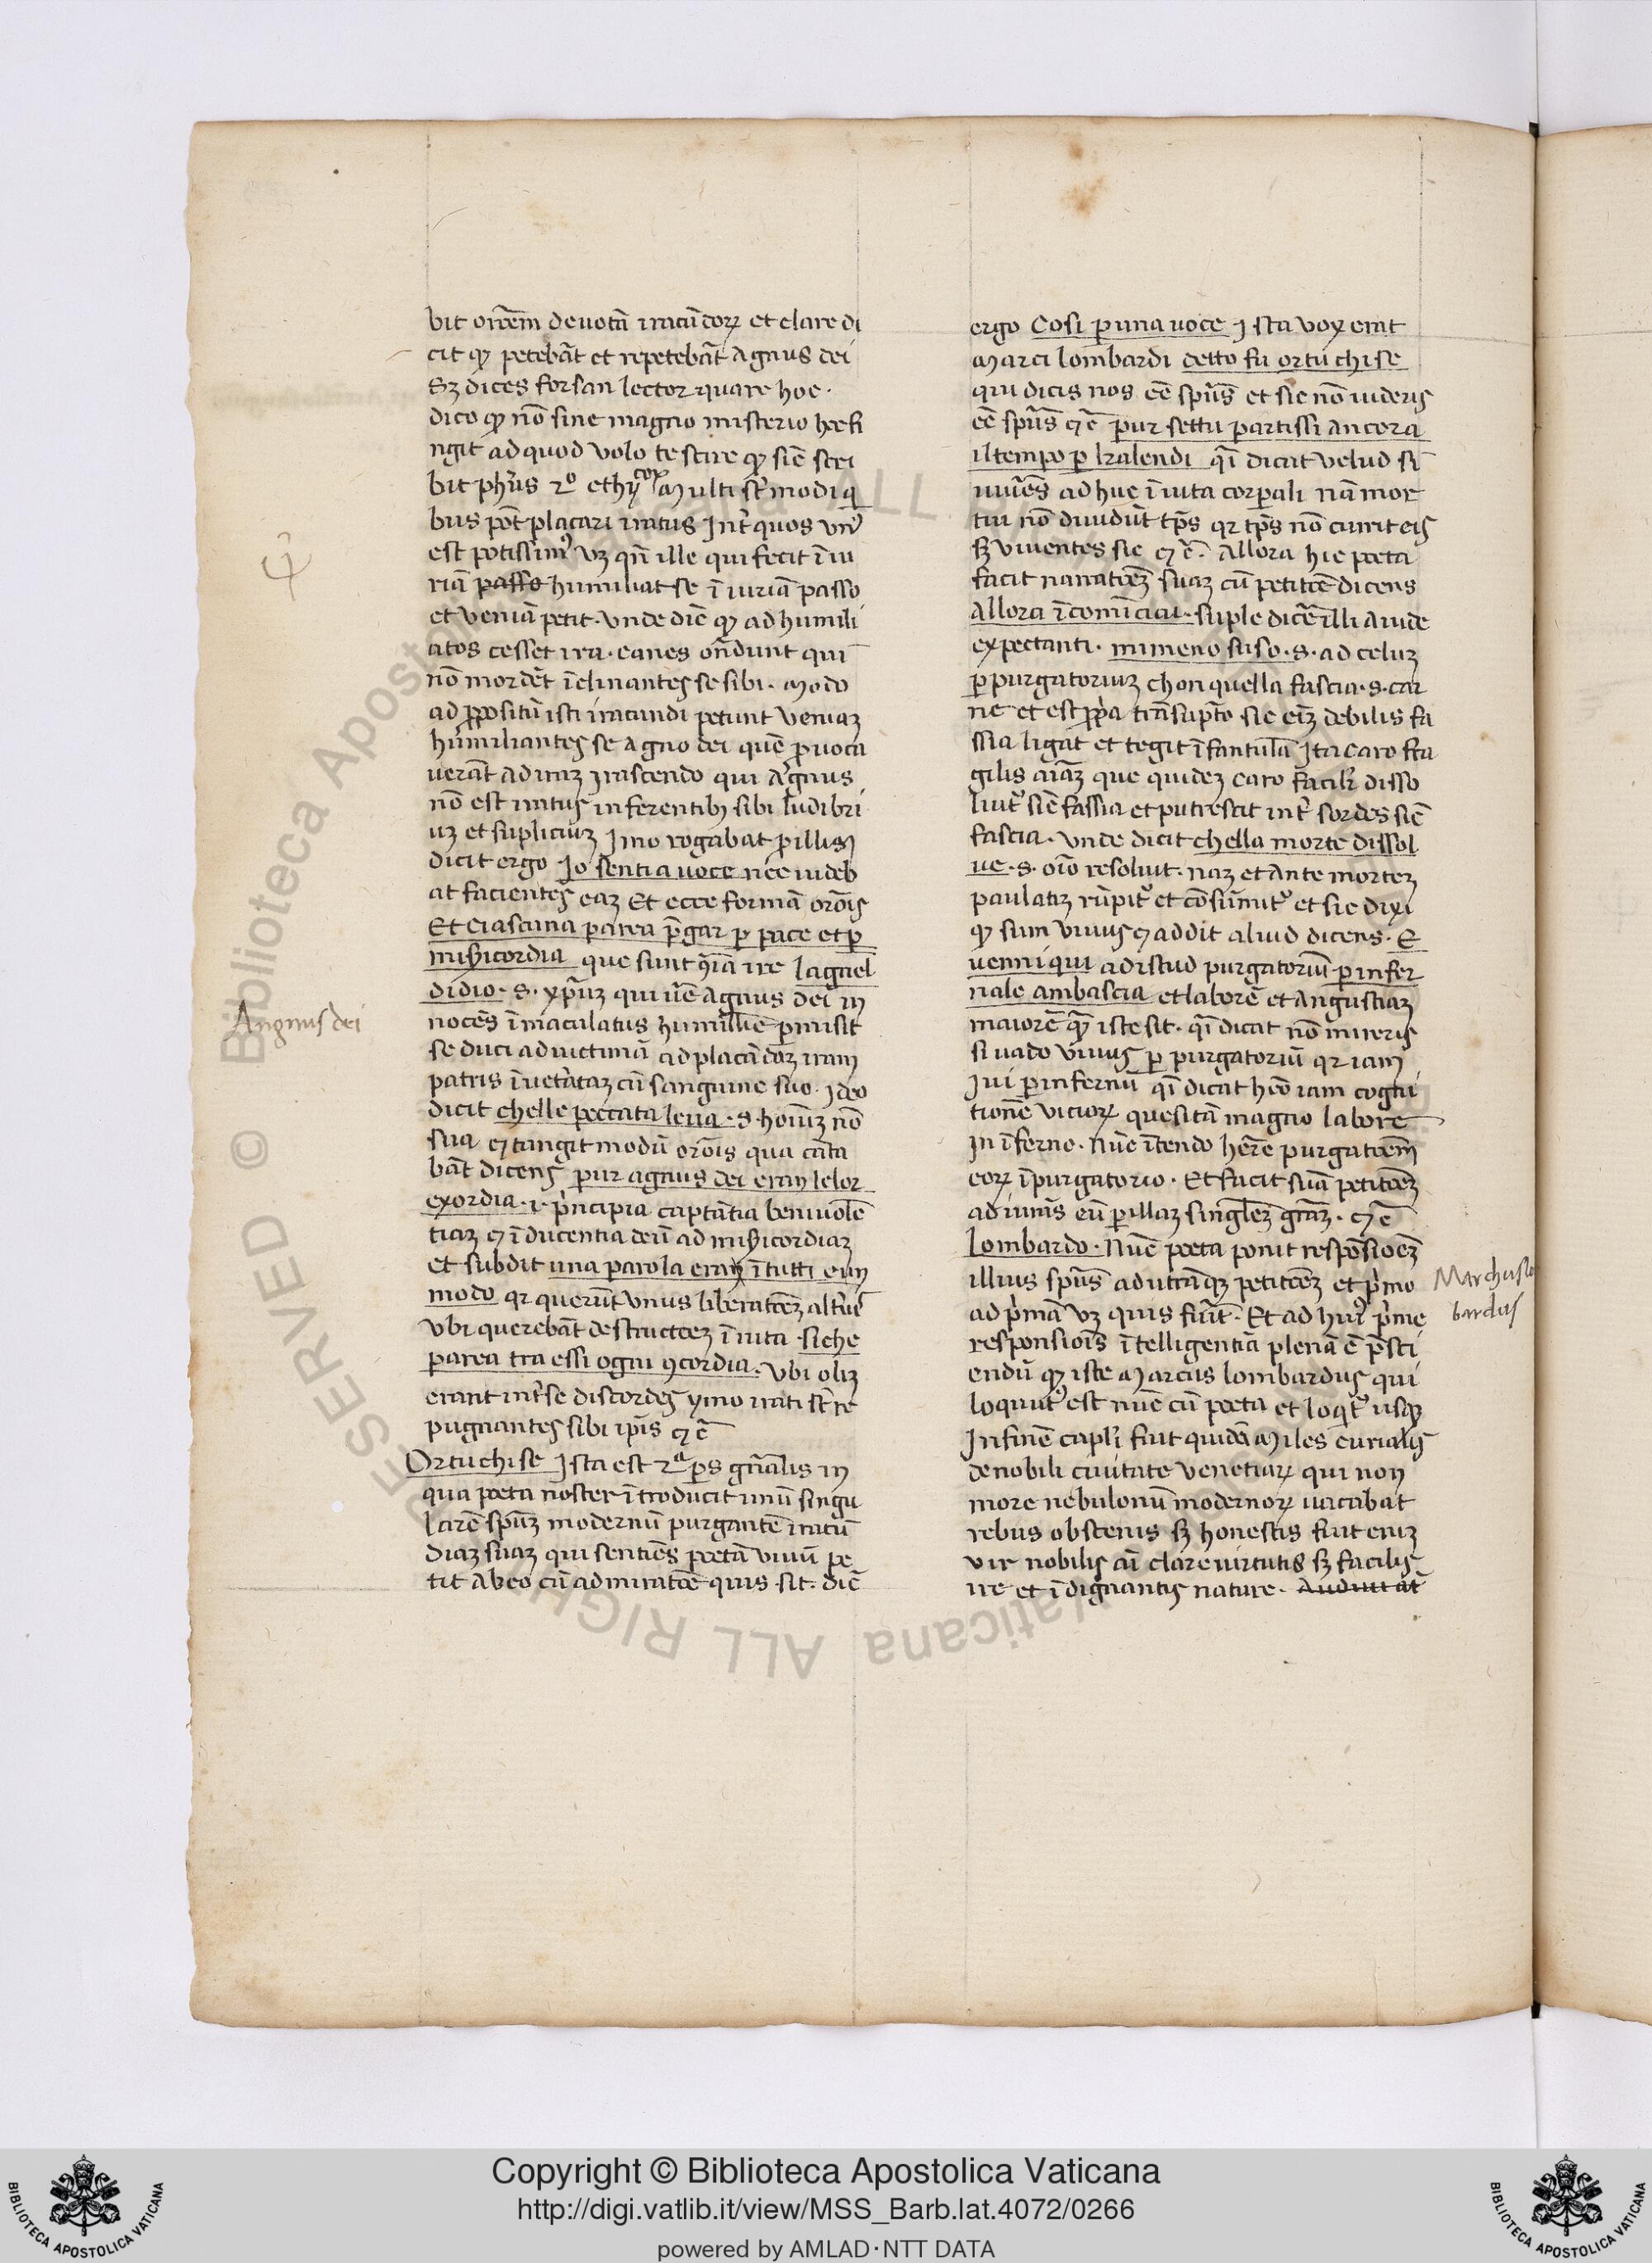 bit or̄oem deuotā iracūdoꝝ et clare di
cit qꝫ petebāt et repetebāt Agnus dei
Sꝫ dices forsan lector quare hoc.
dico qꝫ nō sine magno misterio hec fi
ngit ad quod volo te scire qꝫ sic̄ scri
bit ph̄us 2º ethycoꝝ Multi sūt modi q
bus pōt placari iratus Int̄ quos vn̄
est potissim9 vꝫ qn̄ ille qui fecit ī iu
riā passo humiliat se ī iuriā passo
et veniā petit. vnde dic̄ qꝫ ad humili
atos cesset ira. canes on̄dunt qui
nō mordēt īclinantes se sibi. Modo
ad ppositū isti iracundi petunt veniaꝫ
humiliantes se Agno dei quē prouoca
uerāt ad iraꝫ Irascendo qui Agnus
nō est iratus inferentibꝫ sibi ludibri
uꝫ et supliciuꝫ Imo rogabat p illis
dicit ergo Io sentia uoce nec uideb
at facientes eaꝫ Et ecce formā or̄ois
Et Ciascuna parea p̄gar p pace et p
misicordia que sunt 9̄ria ire lagnel
didio. S. xp̄uꝫ qui ūe Agnus dei in
nocēs īmaculatus humilit̄e permisit
se duci ad uictimā ad placādaꝫ iram
patris īueteratā cū sanguine suo. Ideo
dicit chelle peccata leua. S. hoīuꝫ nō
sua et tangit modū or̄ois qua cāta
bāt dicens pur agnus dei eran le lor
exordia. i. p̄ncipia captātia beniuolē
tiaꝫ et īducentia deū ad misicordiaꝫ
et subdit una parola eran ī tutti e un
modo qr querūt vnus liberat̄oeꝫ alt̄ius
vbi querebāt destructoeꝫ ī uita siche
parea tra essi ogni 9cordia. Vbi oliꝫ
erant int̄ se discordes ymo irati sūt re
pugnantes sibi ip̄is etc̄
Or tu chi se Ista est 2ª ps gn̄alis in
qua poeta noster ītroducit unū singu
larē spūꝫ modernū purgantē iracū
diaꝫ suaꝫ qui sentiēs poetā viuū pe
tit ab eo cū admirat̄oe quis sit. dic̄
Angnus dei
ergo Cosi p una uoce Ista vox erat
Marci lombardi detto fu or tu chi se
qui dicis nos eē spūs et sic nō uideris
eē spūs etc̄ pur se ttu partissi ancora
il tempo p kalendi qī dicat velud si
uiuēs ad huc ī uita corpali nā mor
tui nō diuidūt tp̄s qr tp̄s nō currit eis
sꝫ viuentes sic etc̄. Allora hic poeta
facit narrat̄oeꝫ suaꝫ cū petit̄oe dicens
allora īcominciai. suple dicē illi auide
expectanti. mimeno suso. S. ad celuꝫ
p purgatoriuꝫ chon quella fascia. S. car
ne et est ppa trāsūpto sic eīꝫ debilis fa
ssia ligat et tegit īfantulā Ita caro fra
gilis aīaꝫ que quideꝫ caro facilr̄ disso
luit̄ sic̄ fassia et putrescit int̄ sordes sic̄
fascia. vnde dicit chella morte dissol
ue. S. oīo resoluit. naꝫ et ante morteꝫ
paulatiꝫ rūpit̄ et cōsūmit̄ et sic dixi
qꝫ sum viuus et addit aliud dicens. E
uenni qui ad istud purgatoriū p infer
nale ambascia et laborē et angustiaꝫ
maiorē qꝫ iste sit. qī dicat nō mireris
si uado viuus p purgatoriū qr iam
Iui p infernū qī dicat hēo iam cogni
tionē vicioꝝ quesitā magno labore
In īferno. Nūc ītendo hēre purgat̄oem
eoꝝ ī purgatorio. Et facit suā petit̄oeꝫ
adiurās eū p illaꝫ singlareꝫ gr̄aꝫ. etc̄
Lombardo. Nūc poeta ponit respōsioēꝫ
illius spūs ad utrāqꝫ petit̄oeꝫ et p̄mo
ad p̄mā vꝫ quis fuit. Et ad hui9 p̄me
responsiōis ītelligentiā plenā ē p̄sci
endū qꝫ iste Marcus lombardus qui
loquut9 est nūc cū poeta et loqt̄ usqꝫ
In finē capl̄i fuit quidā Miles curialis
de nobili ciuitate venetiaꝝ qui non
more nebulonū modernoꝝ uacabat
rebus obscenis sꝫ honestis fuit eniꝫ
vir nobilis aī clare uirtutis sꝫ facilis
ire et īdignantis nature. Audiuit at̄
Marchus lo
bardus
Copyright © Biblioteca Apostolica Vaticana
http://digi.vatlib.it/view/MSS_Barb.lat.4072/0266
powered by AMLAD·NTT DATA
BIBLIOTECA APOSTOLICA VATICANA
BIBLIOTECA APOSTOLICA VATICANA